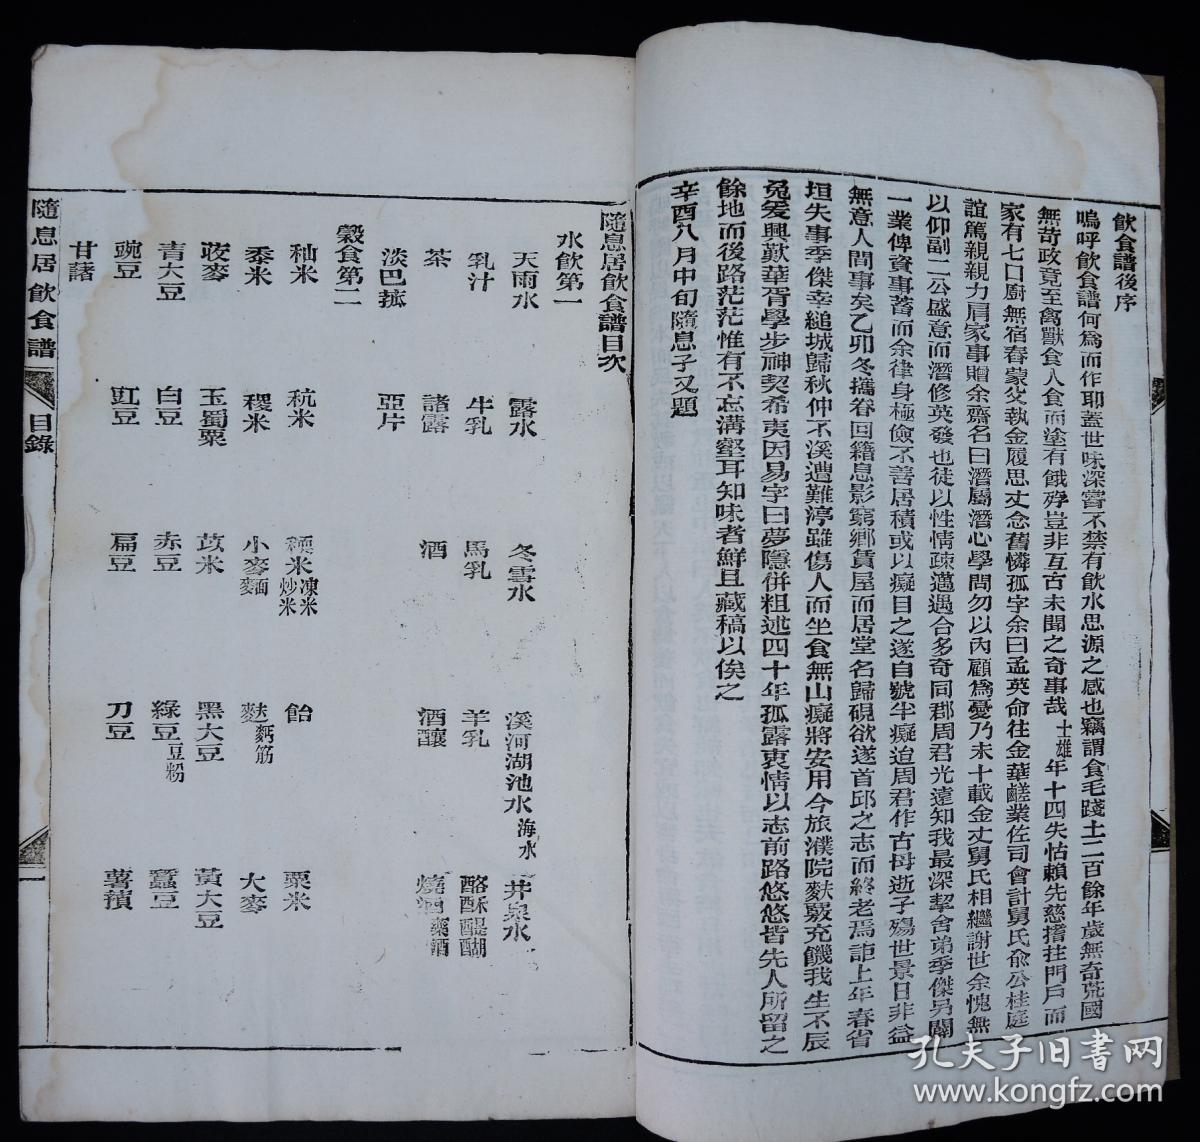 飲食譜後序
嗚呼飲食譜何爲而作耶蓋世味深嘗不禁有飲水思源之感也竊謂食毛踐土二百餘年歲無奇荒國
無苛政竟至禽獸食人食而塗有餓殍豈非亙古未聞之奇事哉士雄年十四失怙賴先慈撐拄門戶而
家有七口廚無宿舂蒙父執金履思丈念舊憐孤字余曰孟英命往金華鹾業佐司會計舅氏俞公桂庭
誼篤親親力肩家事贈余齋名曰潛屬潛心學問勿以內顧爲憂乃未十載金丈舅氏相繼謝世余愧無
以仰副二公盛意而潛修英發也徒以性情疎邁遇合多奇同郡周君光遠知我最深挈舍弟季傑另闢
一業俾資事蓄而余律身極儉不善居積或以癡目之遂自號半癡迨周君作古母逝子殤世景日非益
無意人間事矣乙卯冬攜眷回籍息影窮鄉賃屋而居堂名歸硯欲遂首邱之志而終老焉詎上年春省
垣失事季傑幸縋城歸秋仲不溪遭難渟雖傷人而坐食無山癡將安用今旅濮院麩覈充饑我生不辰
兔爰興歎華胥學步神契希夷因易字曰夢隱併粗述四十年孤露衷情以志前路悠悠皆先人所留之
餘地而後路茫茫惟有不忘溝壑耳知味者鮮且藏稿以俟之
辛酉八月中旬隨息子又題
隨息居飲食譜目次
水飲第一
天雨水 露水 冬雪水 溪河湖池水海水 井泉水
乳汁 牛乳 馬乳 羊乳 酪酥醍醐
茶 諸露 酒 酒釀 燒酒藥酒
淡巴菰 亞片
穀食第二
秈米 秔米 稬米凍米炒米 飴 粟米
黍米 稷米 小麥麵 麩麪筋 大麥
荍麥 玉蜀粟 苡米 黑大豆 黃大豆
青大豆 白豆 赤豆 綠豆豆粉 蠶豆
豌豆 豇豆 扁豆 刀豆 薯蕷
甘藷
隨息居飲食譜 目錄 一
孔夫子旧书网
www.kongfz.com